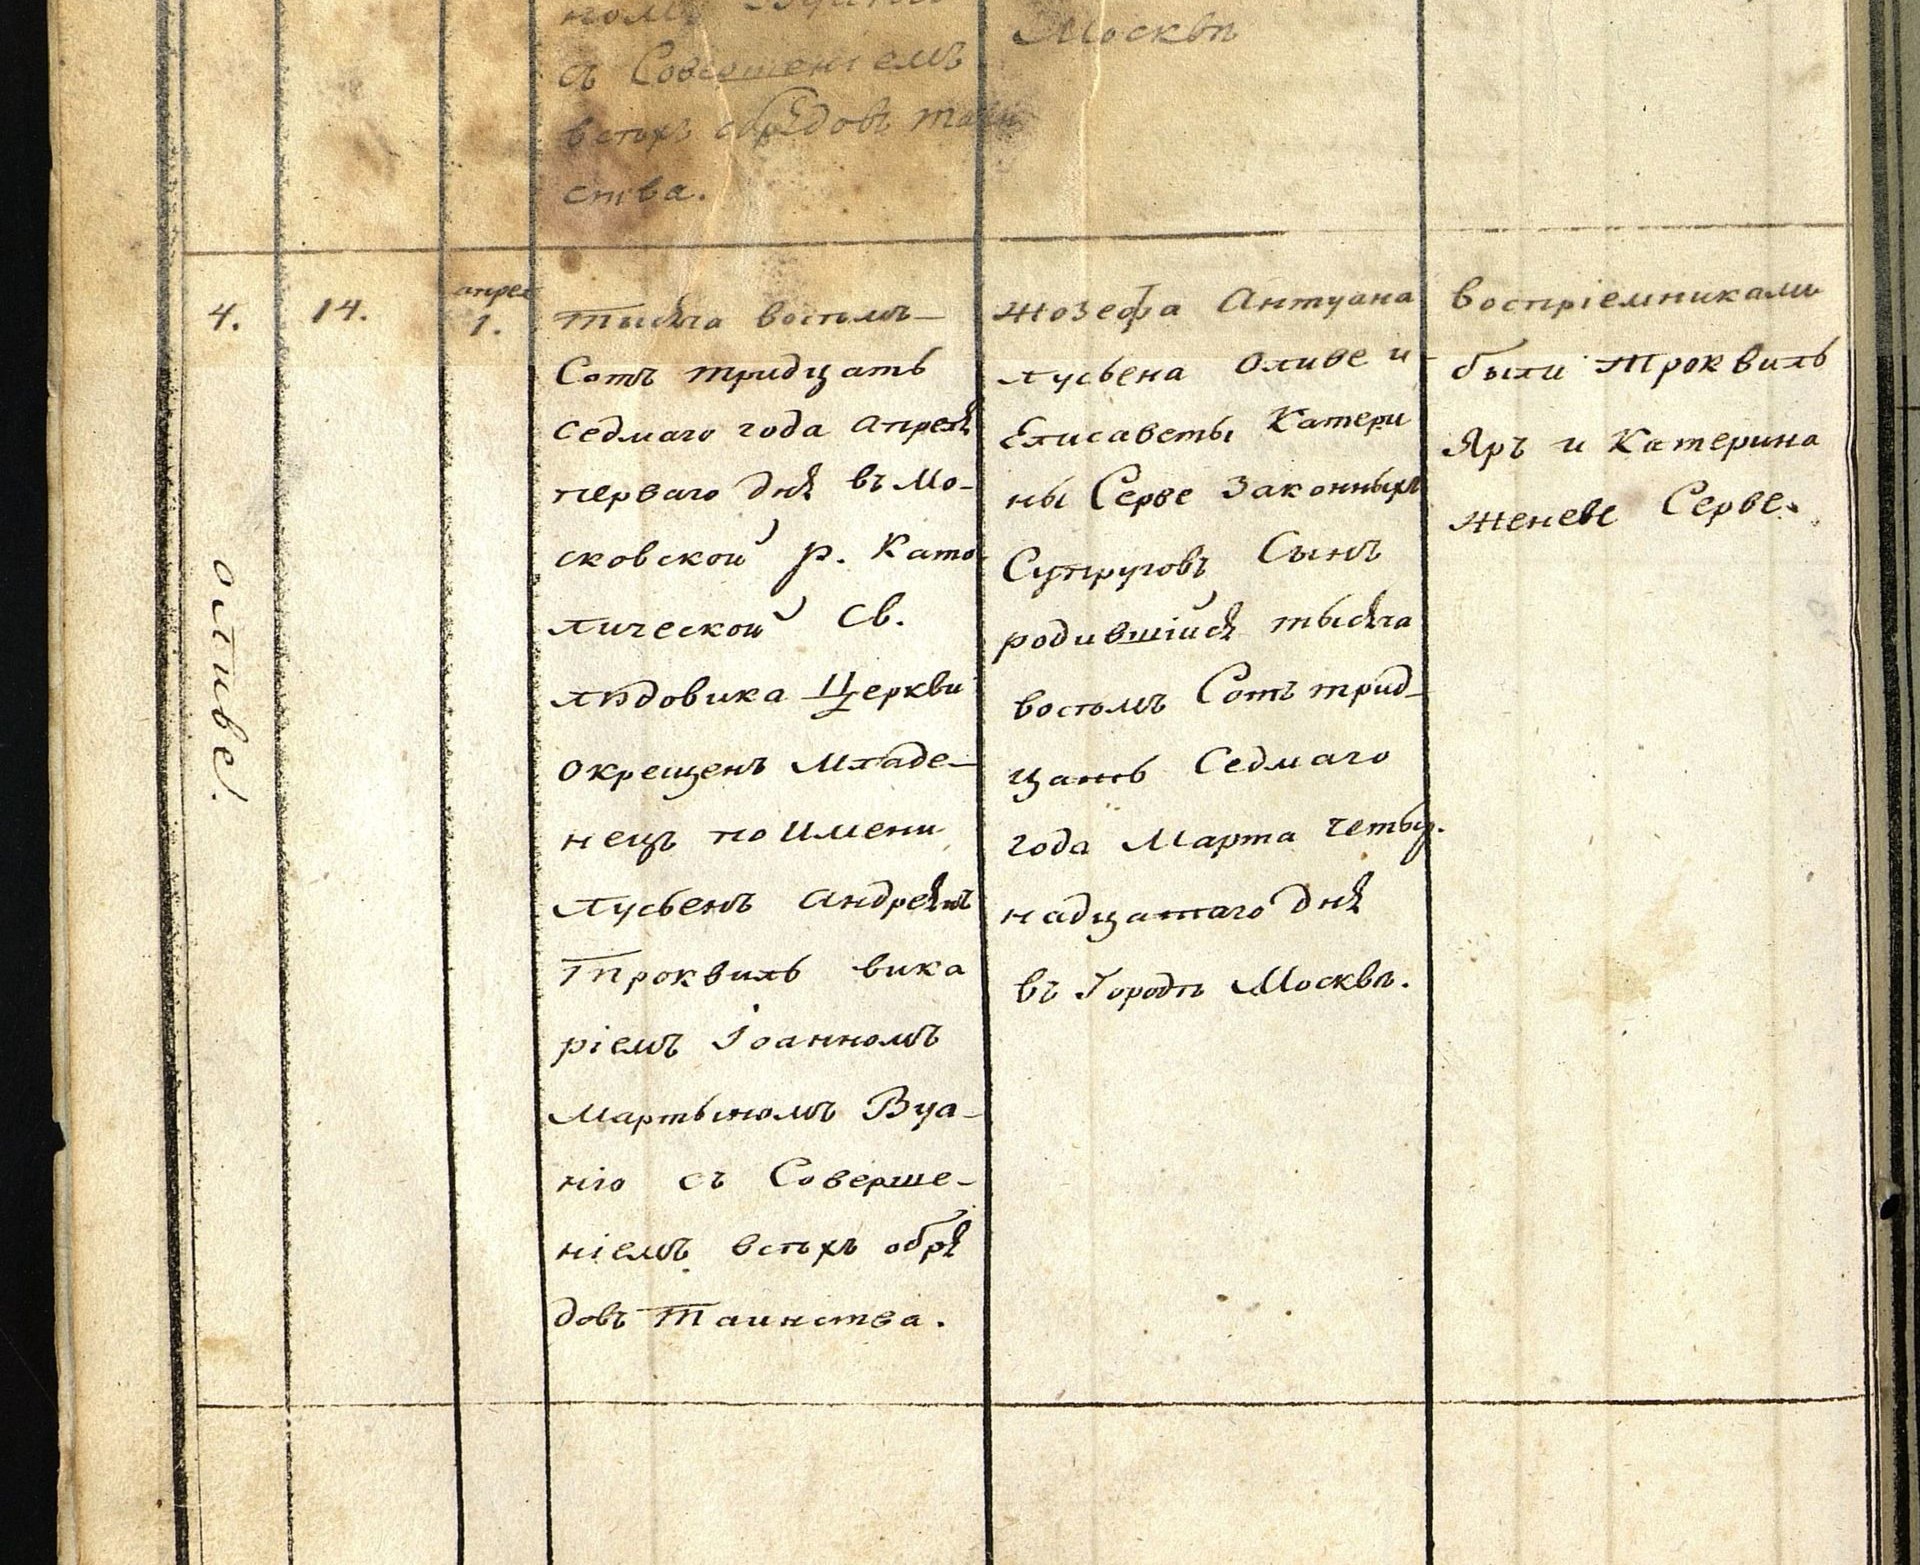 съ Совершеніемъ
всѣхъ обрядовъ таин
ства.
Москвѣ
4.
14.
апрел
1.
Оливе.
Тысяча восѣмъ-
Сотъ тридцать
седмаго года апреля
перваго дня въ Мо-
сковской р. Като
лической Св.
Людовика Церкви
окрещенъ младе-
нецъ по имени
Лусьенъ Андреянъ
Трокви­ль вика
ріемъ Іоанномъ
Мартыномъ Вуа-
ніо съ Соверше-
ніемъ всѣхъ обря
довъ Таинства.
Жозефа Антуана
Лусьена Оливе и
Елисаветы Катери
ны Серве Законныхъ
Супруговъ Сынъ
родившійся тысяча
восѣмъ Сотъ трид-
цать Седмаго
года Марта четыр.
надцатаго дня
въ Городѣ Москвѣ.
воспріемниками
были Троквиль
Яръ и Катерина
Женеве Серве.